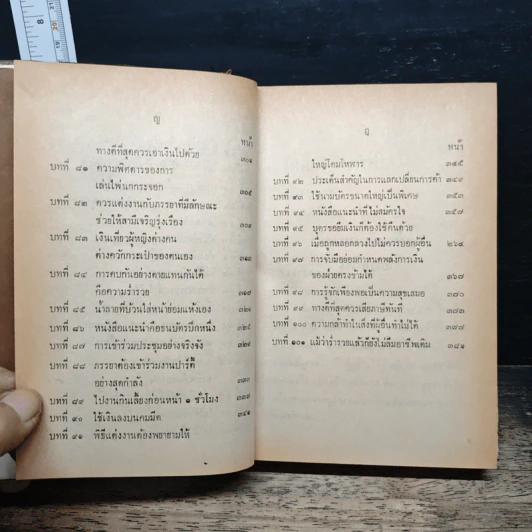 8
ญ
หน้า
ทางดีที่สุดควรเอาเงินไปด้วย ๓๐๑
บทที่ ๘๑ ความพิศดารของการ
เล่นไพ่นกกระจอก ๓๐๕
บทที่ ๘๒ ควรแต่งงานกับภรรยาที่มีลักษณะ
ช่วยให้สามีเจริญรุ่งเรือง ๓๐๙
บทที่ ๘๓ เงินเที่ยวผู้หญิงต่างคน
ต่างควักกระเป๋าของตนเอง ๓๑๓
บทที่ ๘๔ การคบกันอย่างตายแทนกันได้
คือความร่ำรวย ๓๑๗
บทที่ ๘๕ น้ำลายที่บ้วนใส่หน้าย่อมแห้งเอง
บทที่ ๘๖ หนังสือแนะนำคือธนบัตรปึกหนึ่ง ๓๒๔
บทที่ ๘๗ การเข้าร่วมประชุมอย่างจริงจัง ๓๒๗
บทที่ ๘๘ ภรรยาต้องเข้าร่วมงานปาร์ตี้
อย่างสุดกำลัง ๓๓๓
บทที่ ๘๙ ไปงานกินเลี้ยงก่อนหน้า ๑ ชั่วโมง ๓๓๗
บทที่ ๙๐ ใช้เงินลงบนคมมีด ๓๔๑
บทที่ ๙๑ พิธีแต่งงานต้องพยายามให้
ฎ
หน้า
ใหญ่โตมโหฬาร ๓๔๕
บทที่ ๙๒ ประเด็นสำคัญในการแลกเปลี่ยนการค้า ๓๔๙
บทที่ ๙๓ ใช้นามบัตรขนาดใหญ่เป็นพิเศษ ๓๕๓
บทที่ ๙๔ หนังสือแนะนำที่ไม่สมัครใจ ๓๕๗
บทที่ ๙๕ บุตรขอยืมเงินก็ต้องใช้คืนด้วย
บทที่ ๙๖ เมื่อถูกหลอกลวงไปไม่ควรบอกผู้อื่น ๒๖๔
บทที่ ๙๗ การจับมือย่อมกำหนดพลังการเงิน
ของฝ่ายตรงข้ามได้ ๓๖๗
บทที่ ๙๘ การรู้จักเพียงพอเป็นความสุขเสมอ ๓๗๐
บทที่ ๙๙ ทางดีที่สุดควรเสียภาษีทันที ๓๗๓
บทที่ ๑๐๐ ความกล้าทำในสิ่งที่ผู้อื่นทำไม่ได้ ๓๗๗
บทที่ ๑๐๑ แม้ว่าร่ำรวยแล้วก็ยังไม่ลืมอาชีพเดิม ๓๘๑